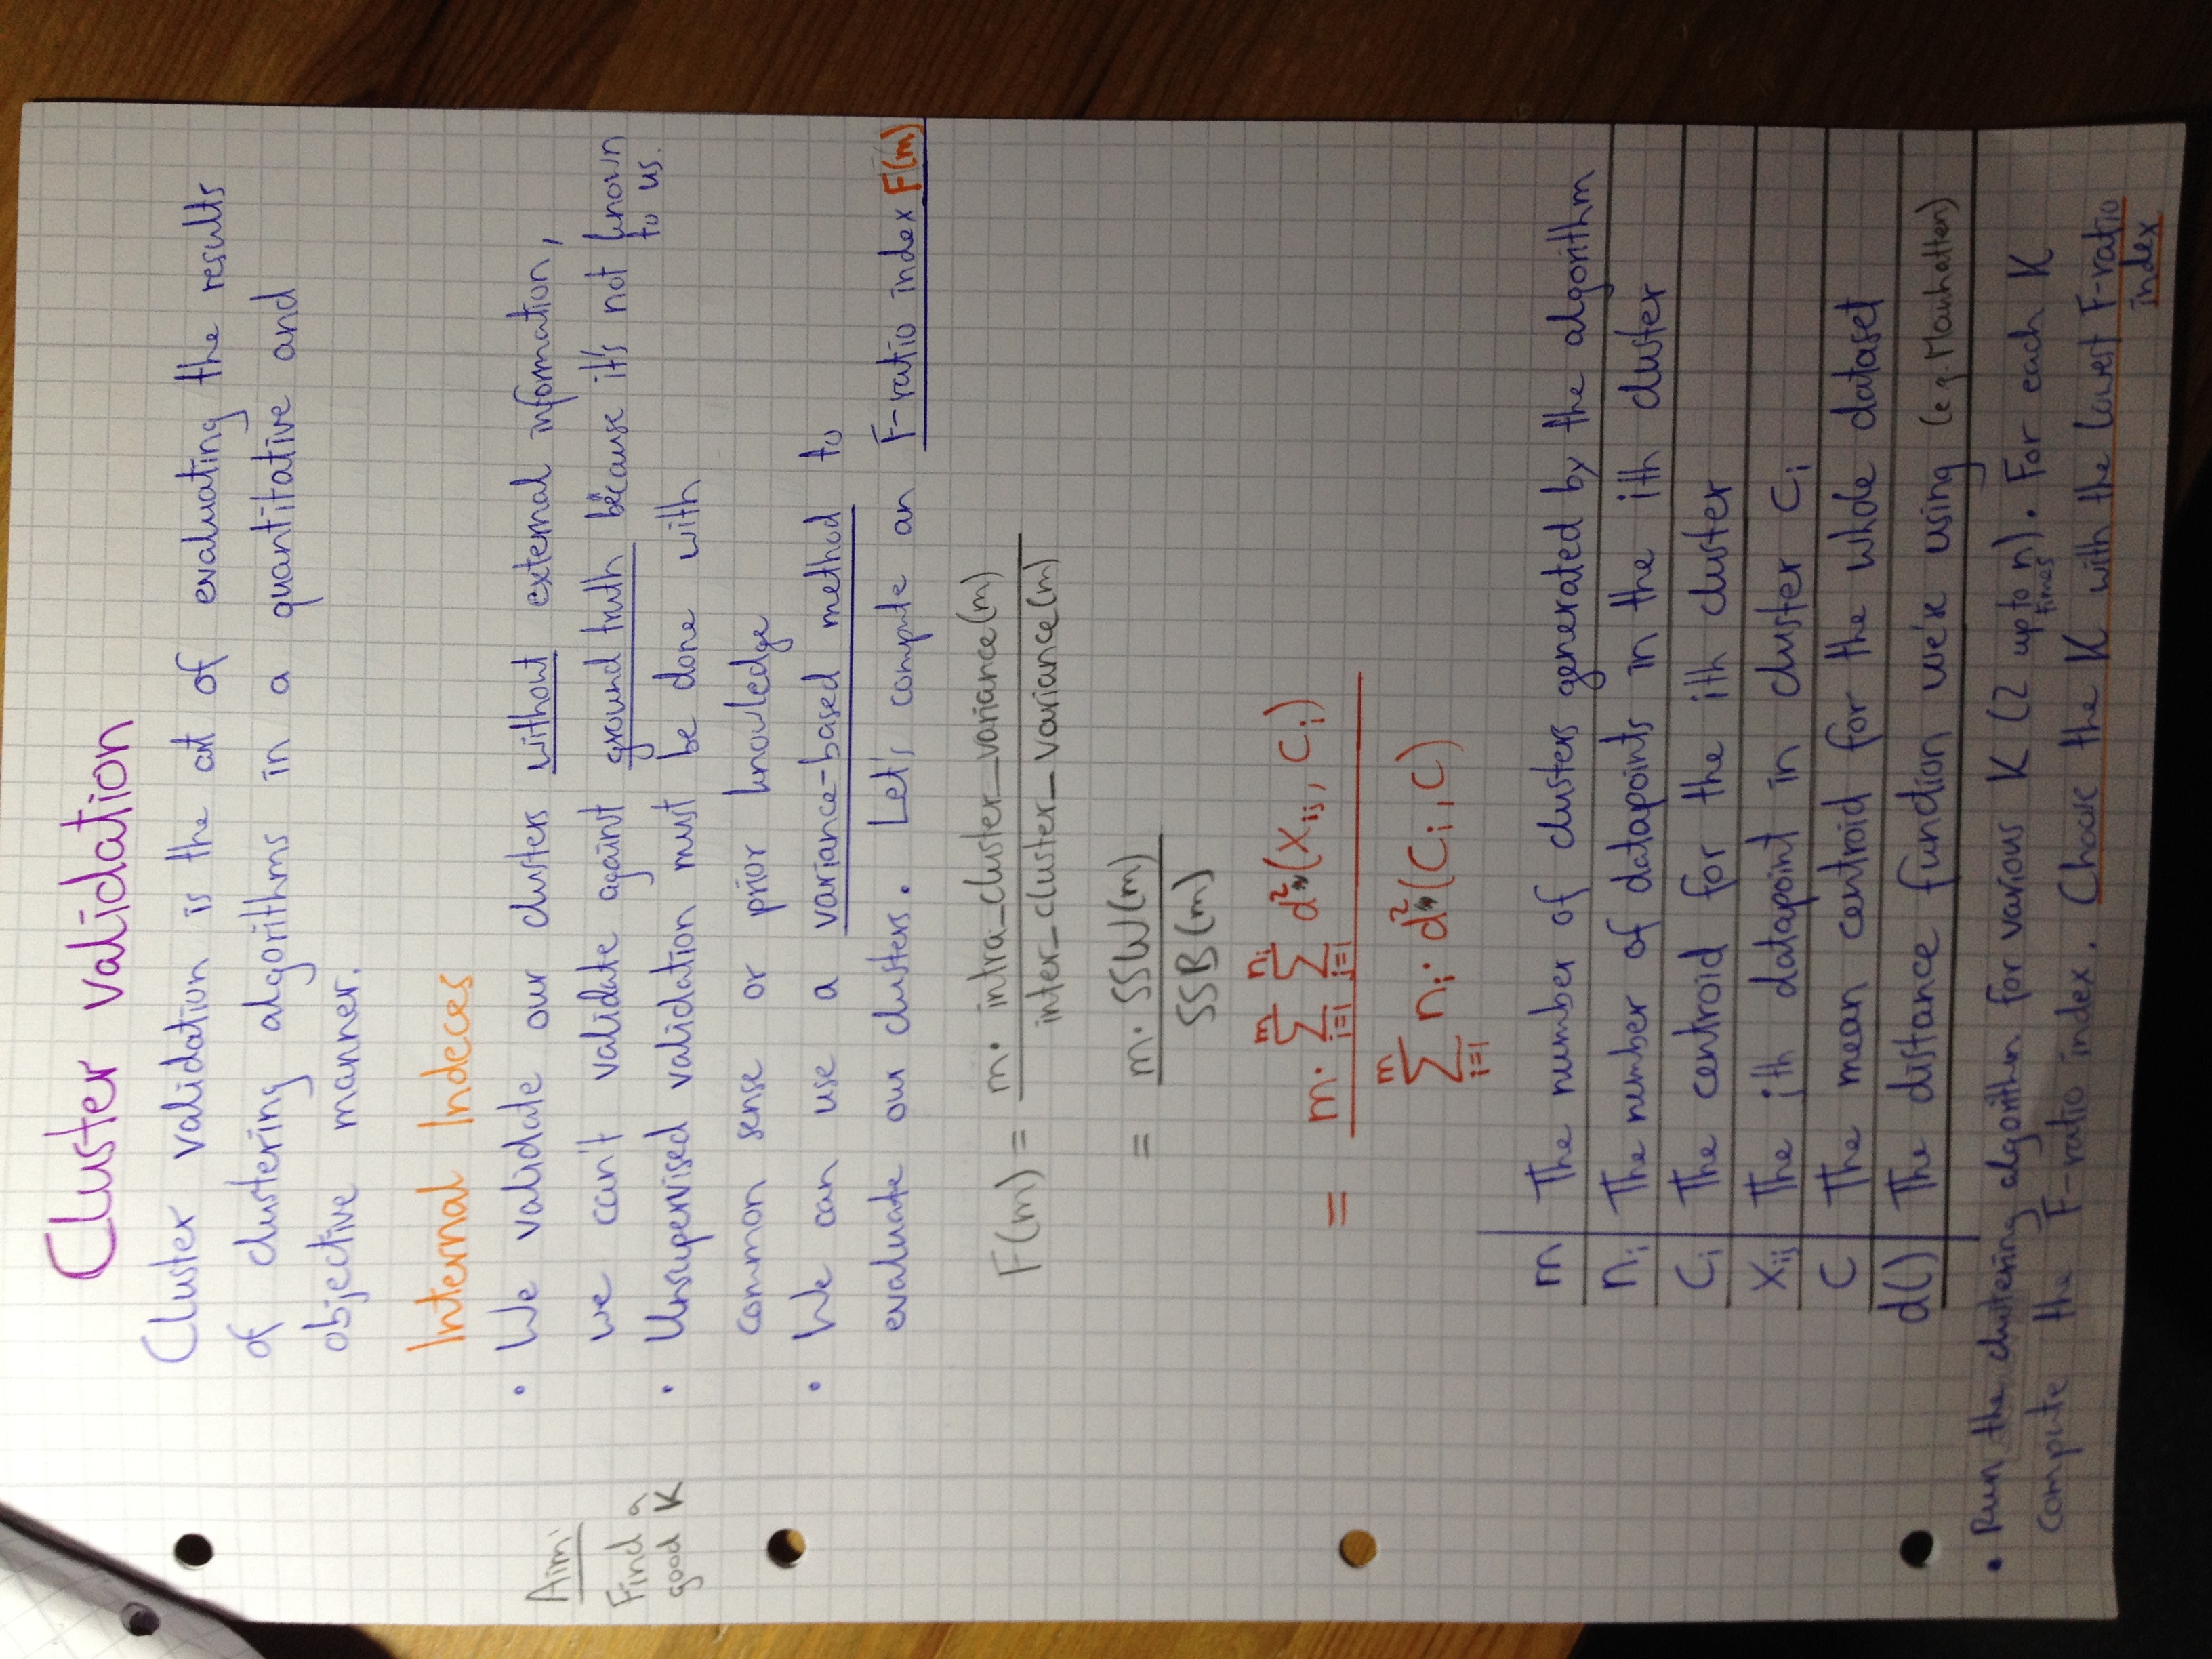 Cluster validation
Cluster validation is the art of evaluating the results
of clustering algorithms in a quantitative and
objective manner.
Internal Indeces
• We validate our clusters without external information,
we can't validate against ground truth because it's not known
to us.
Aim:
Find a
good K
• Unsupervised validation must be done with
common sense or prior knowledge
• We can use a variance-based method to
evaluate our clusters. Let's compute an F-ratio index F(m)
F(m) = m· intra_cluster_variance(m)
inter_cluster_variance(m)
= m· SSW(m)
SSB(m)
= m· ∑_{i=1}^{m} ∑_{j=1}^{n_i} d²(x_ij, C_i)
∑_{i=1}^{m} n_i· d²(C_i, C)
m | The number of clusters generated by the algorithm
n_i | The number of datapoints in the ith cluster
C_i | The centroid for the ith cluster
X_ij | The jth datapoint in cluster C_i
C | The mean centroid for the whole dataset
d() | The distance function we're using (e.g. Manhatten)
• Run the clustering algorithm for various K (2 up to n).
times
For each K
compute the F-ratio index. Choose the K with the lowest F-ratio
index